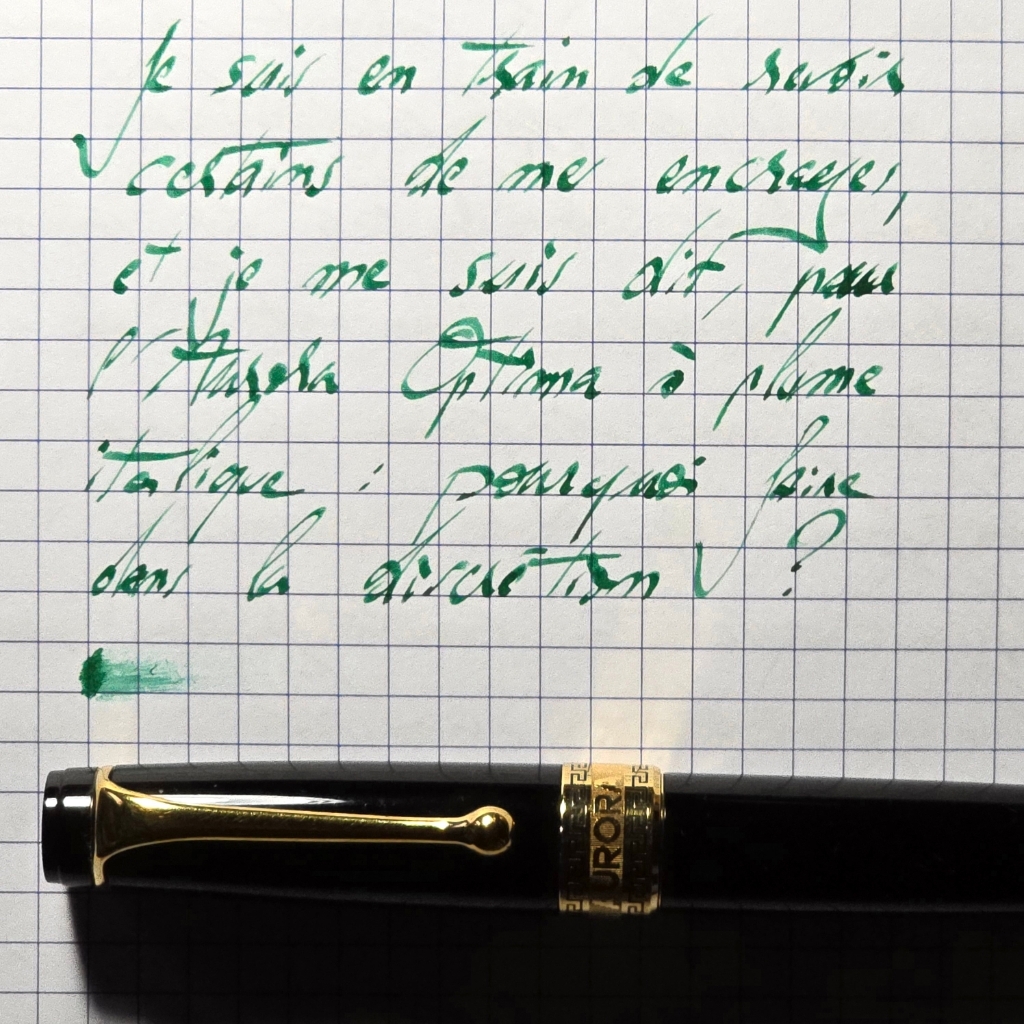 Je suis en train de revoir
certains de me encrages,
et je me suis dit, pour
l'Aurora Optima à plume
italique : pourquoi faire
dans la discrétion ?
AURORA